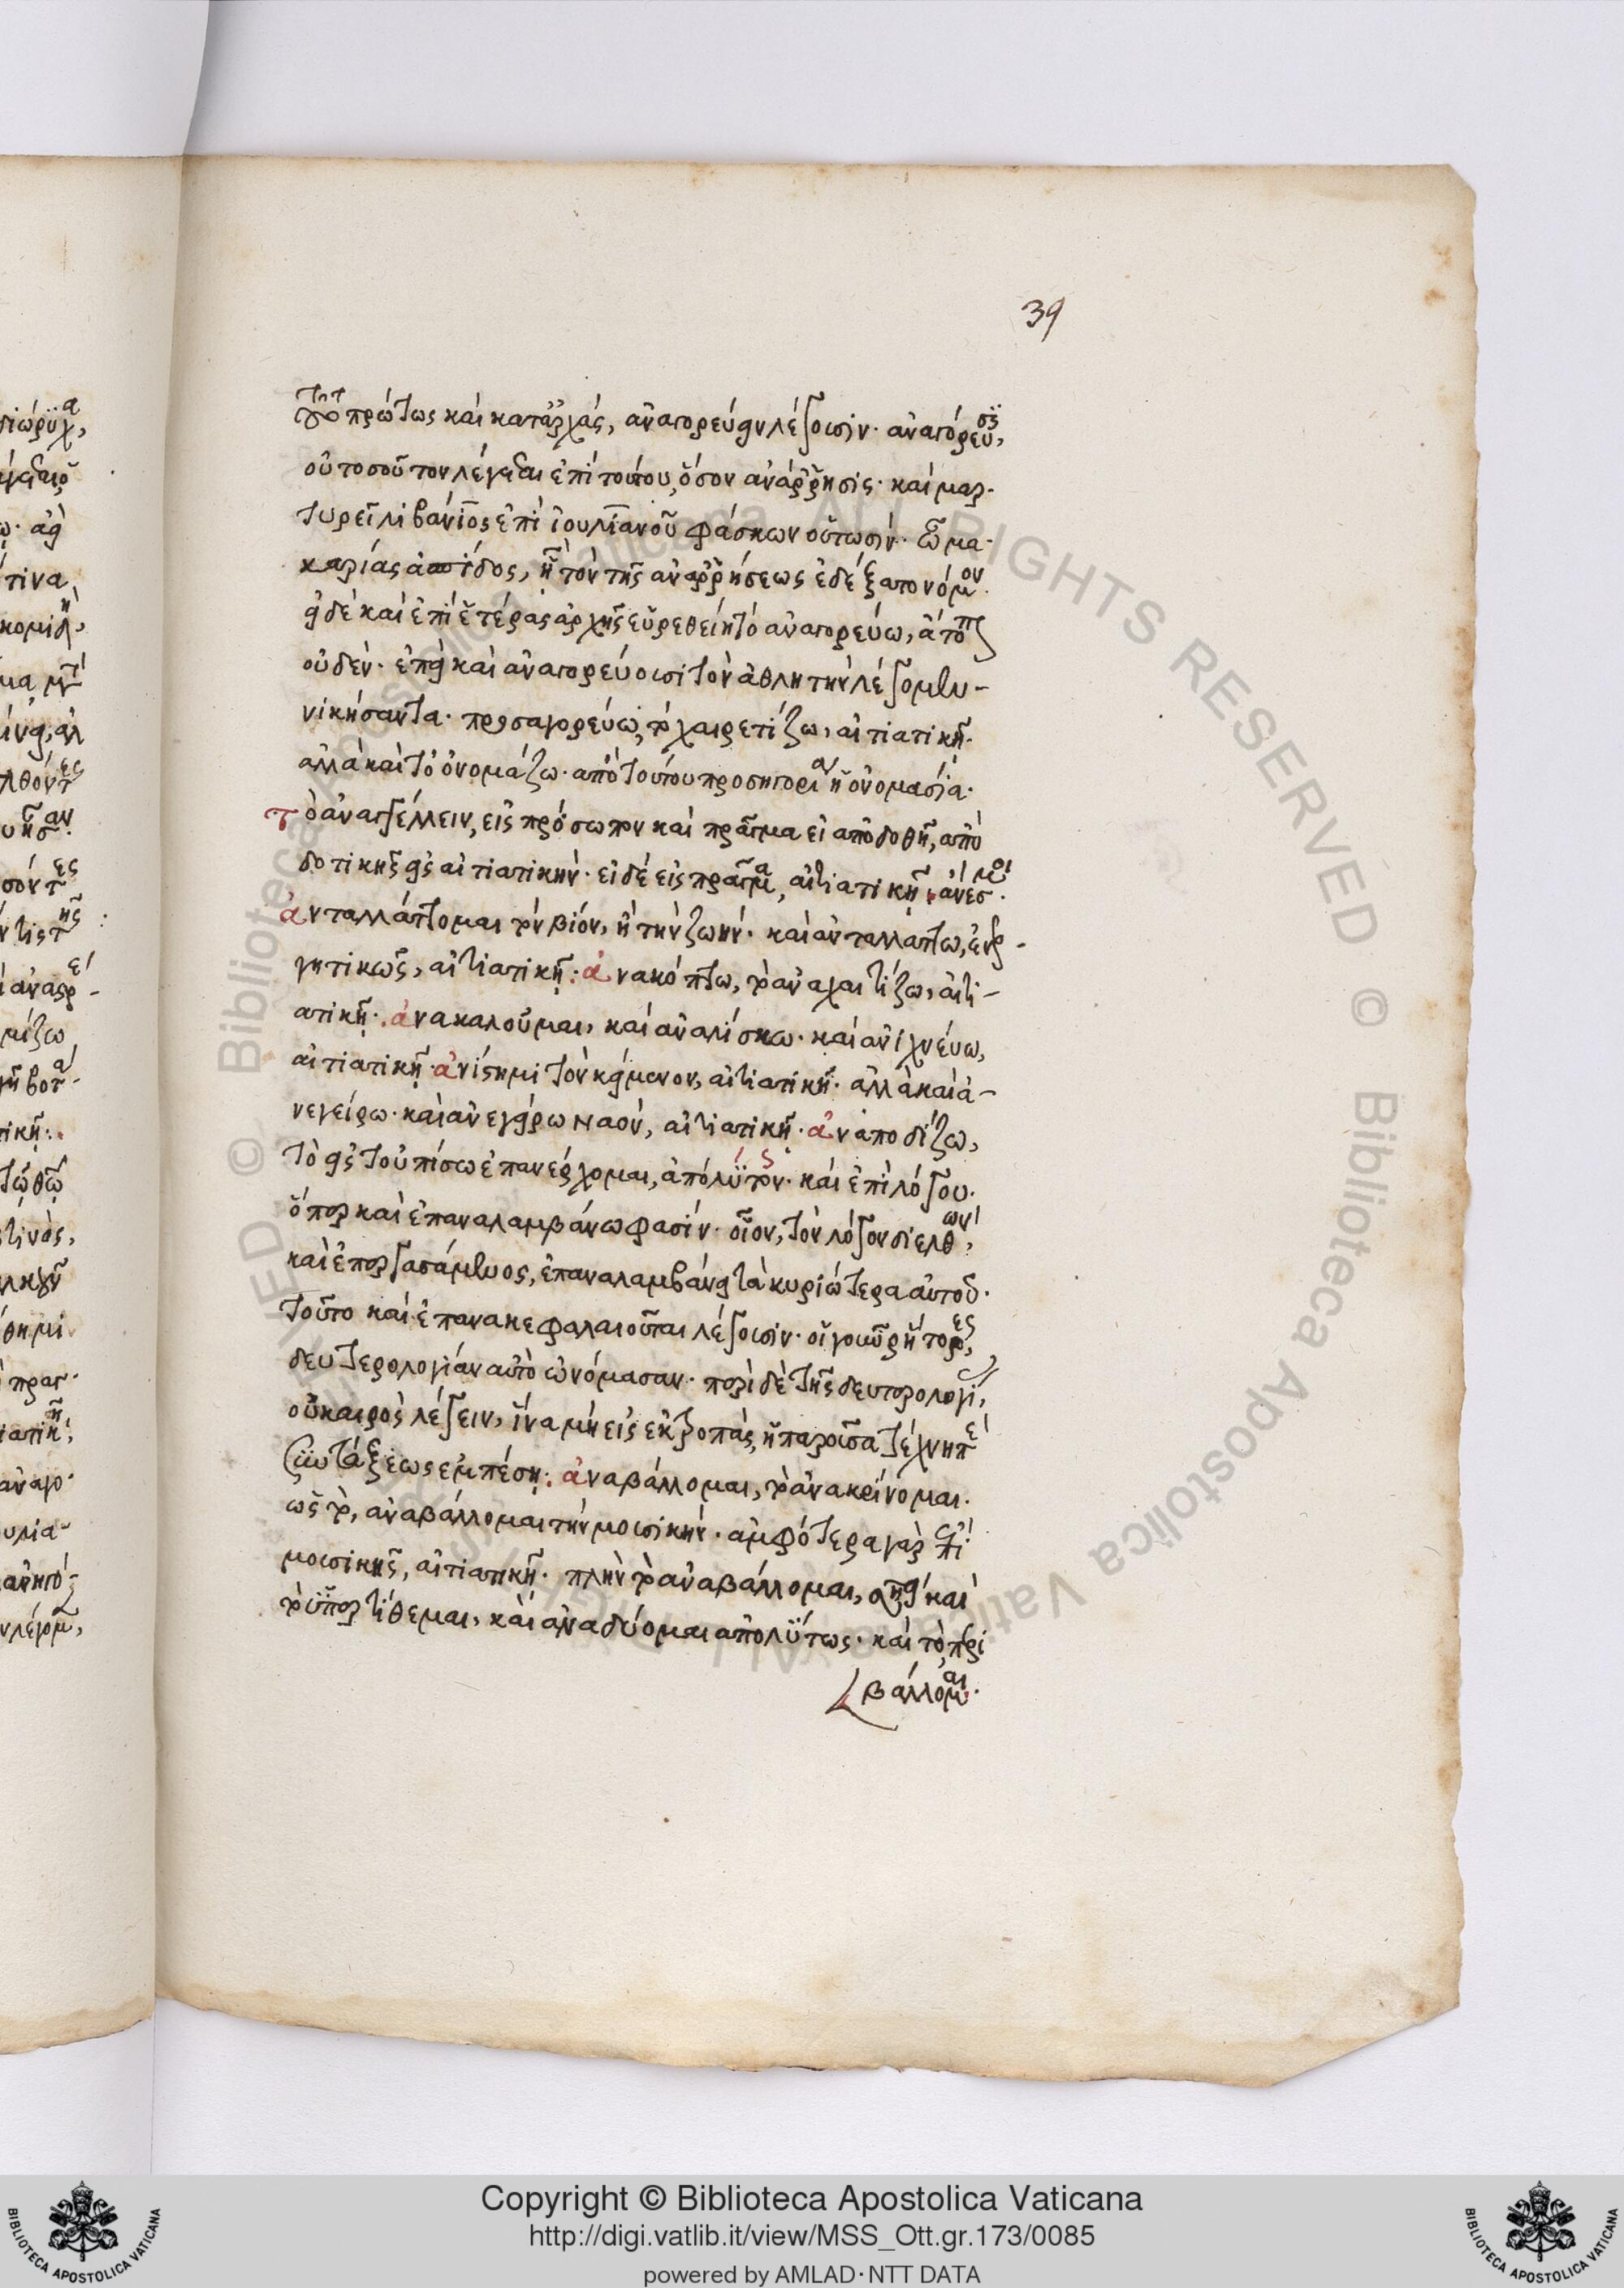 39
πρώτως καὶ καταρχάς, ἀναγορεύειν λέγουσιν· ἀναγόρευσϊ,
οὐ τοσοῦτον λέγεται ἐπὶ τούτου, ὅσον ἀνάρρησις· καὶ μαρ-
τυρεῖ λιβάνιος ἐπὶ ἰουλιανοῦ φάσκων οὕτωσίν· ὦ μα-
καρίας ἀσπίδος, ἣ τὸν τῆς ἀναρρήσεως ἐδέξατο νόμον.
εἰ δὲ καὶ ἐπὶ ἑτέρας ἀρχῆς εὑρεθείη τὸ ἀναγορεύω, ἄτοπον
οὐδέν· ἐπεὶ καὶ ἀναγορεύουσι τὸν ἀθλητὴν λέγομεν
νικήσαντα· προσαγορεύω, τὸ χαιρετίζω, αἰτιατικῇ.
ἀλλὰ καὶ τὸ ὀνομάζω· ἀπὸ τούτου προσηγορία ἡ ὀνομασία·
τὸ ἀναγγέλλειν, εἰς πρόσωπον καὶ πρᾶγμα εἰ ἀποδοθῇ, ἀπὸ
δοτικῆς εἰς αἰτιατικήν· εἰ δὲ εἰς πρᾶγμα, αἰτιατικῇ:
ἀνταλλάττομαι τὸν βίον, ἢ τὴν ζωήν· καὶ ἀνταλλάττω, ἐνερ-
γητικῶς, αἰτιατικῇ: ἀνακόπτω, τὸ ἀναχαιτίζω, αἰτι-
ατικῇ· ἀνακαλοῦμαι, καὶ ἀναλίσκω· καὶ ἀνιχνεύω,
αἰτιατικῇ· ἀνίστημι τὸν κείμενον, αἰτιατικῇ· ἀλλὰ καὶ ἀ-
νεγείρω· καὶ ἀνεγείρω ναόν, αἰτιατικῇ· ἀναποδίζω,
τὸ εἰς τοὐπίσω ἐπανέρχομαι, ἀπόλυτον· καὶ ἐπὶ λόγου.
ὅπερ καὶ ἐπαναλαμβάνω φασίν· οἷον, τὸν λόγον διελθών,
καὶ ἐπεργασάμενος, ἐπαναλαμβάνει τὰ κυριώτερα αὐτοῦ·
τοῦτο καὶ ἐπανακεφαλαιοῦται λέγουσιν· οἱ γοῦν ῥήτορες,
δευτερολογίαν αὐτὸ ὠνόμασαν· περὶ δὲ τῆς δευτερολογί,
οὐ καιρὸς λέγειν, ἵνα μὴ εἰς ἐκτροπὰς, ἡ παροῦσα τέχνη
συντάξεως ἐμπέσῃ: ἀναβάλλομαι, τὸ ἀνακρίνομαι.
ὡς τὸ, ἀναβάλλομαι τὴν μουσικήν· ἀμφότερα γὰρ ἐπὶ
μουσικῆς, αἰτιατικῇ· πλὴν τὸ ἀναβάλλομαι, καὶ
τὸ ὑπερτίθεμαι, καὶ ἀναδύομαι ἀπολύτως· καὶ τὸ περι
βάλλομαι.
Copyright © Biblioteca Apostolica Vaticana
http://digi.vatlib.it/view/MSS_Ott.gr.173/0085
powered by AMLAD·NTT DATA